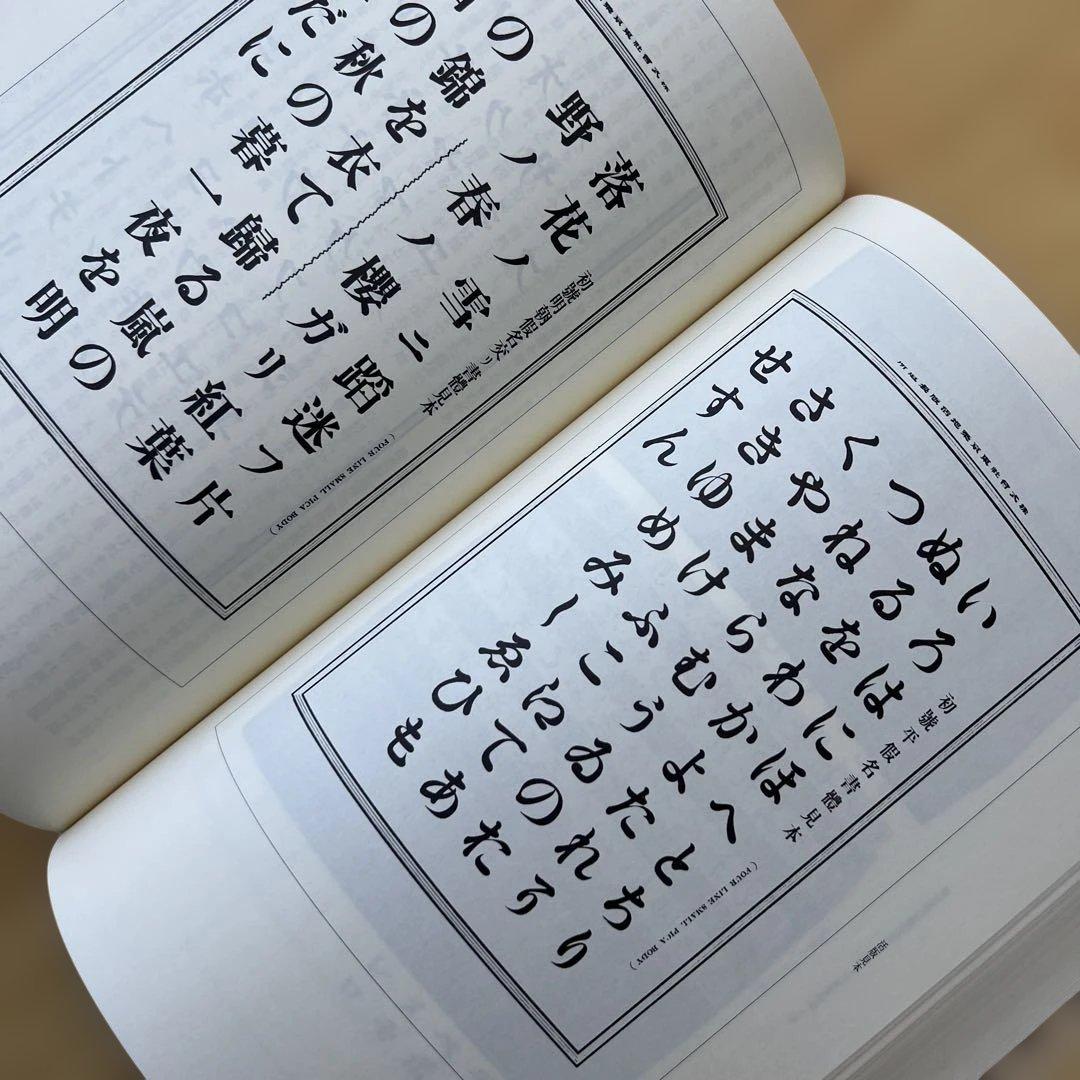 株式會社東京築
初號明朝假名交リ書體見本
(FOUR LINE SMALL PICA BODY)
落花ノ雪ニ蹈迷フ片
野ノ春ノ櫻ガリ紅葉
の錦を衣て歸る嵐の
の秋の暮一夜を明
だに
株式會社東京築地活版製造所
初號平假名書體見本
(FOUR LINE SMALL PICA BODY)
いろはにほへとちり
ぬるをわかよたれそ
つねならむうゐのお
くやまけふこえてあ
さきゆめみしゑひも
せすん
活版見本